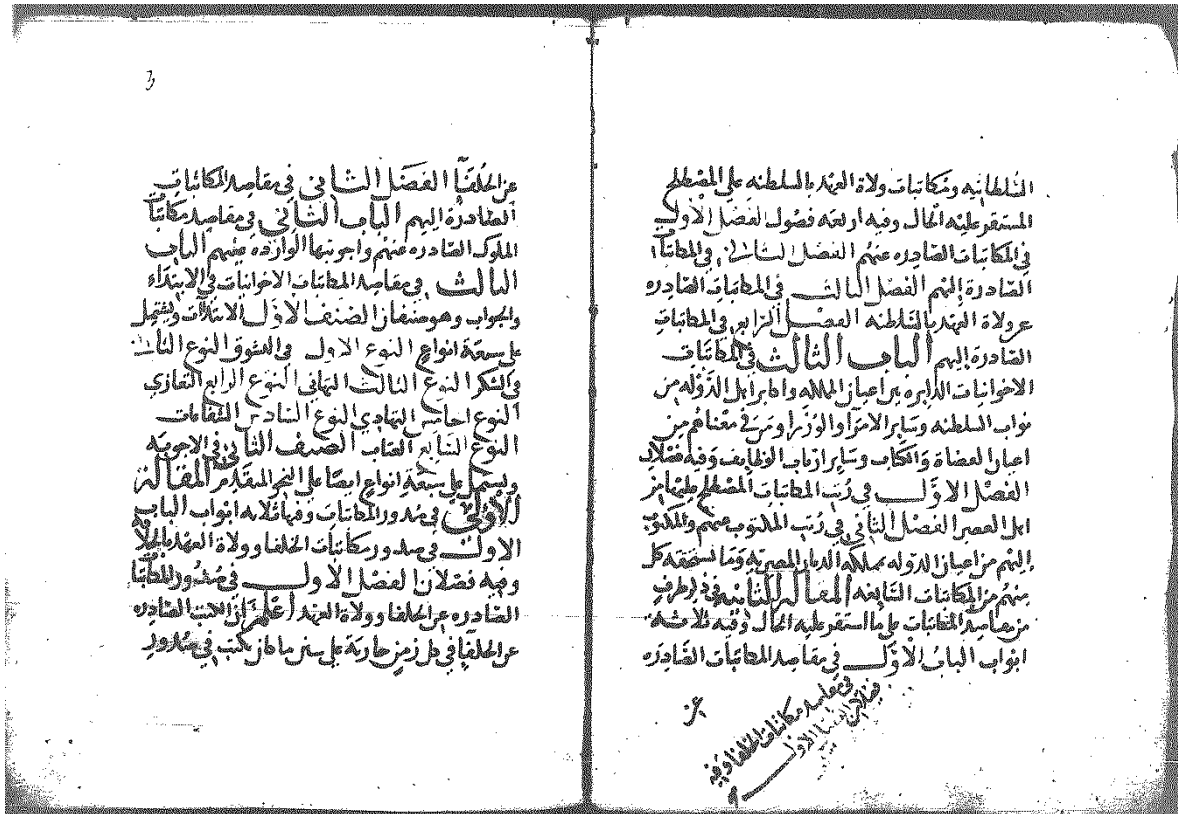 السلطانيه ومكاتبات ولاة العهد بالسلطنه علي المصطلح
المستقر عليه الحال وفيه اربعه فصول الفصل الاول
في المكاتبات الصادره عنهم الفصل الثاني في المكاتبا
الصادرة اليهم الفصل الثالث في المكاتبات الصادره
عن ولاة العهد بالسلطنه الفصل الرابع في المكاتبات
الصادرة اليهم الباب الثالث في المكاتبات
الاخوانيات الدايره بين اعيان المملكه واكابر اهل الدوله من
نواب السلطنه وساير الامرا والوزرا ومن في معناهم من
اعيان القضاة والكتاب وساير ارباب الوظايف وفيه فصلان
الفصل الاول في رتب المكاتبات المصطلح عليها من
اهل العصر الفصل الثاني في رتب المكتوب عنهم والمكتوب
اليهم من اعيان الدوله بمملكة الديار المصرية وما يستحقه كل
منهم من المكاتبات السابقه المقالة الثانيه في ذكر طرف
من مقاصد المكاتبات علي ما استقر عليه الحال وفيه ثلاثه
ابواب الباب الاول في مقاصد المكاتبات الصادره
عن
في مقاصد مكاتبات الخلفا وفيه
فصلان الاول
عن الخلفآ الفصل الثاني في مقاصد المكاتبات
الصادرة اليهم الباب الثاني في مقاصد مكاتبات
الملوك الصادره عنهم واجوبتها الوارده عنهم الباب
الثالث في مقاصد المكاتبات الاخوانيات في الابتداء
والجواب وهو صنفان الصنف الاول الابتداآت ويشتمل
علي سبعة انواع النوع الاول في التشوق النوع الثاني
في الشكر النوع الثالث التهاني النوع الرابع التعازي
النوع الخامس التهادي النوع السادس الشفاعات
النوع السابع العتاب الصنف الثاني في الاجوبه
ويشتمل علي سبعة انواع ايضا علي النحو المقدم المقالة
الاولي في صدور المكاتبات وفيها ثلاثه ابواب الباب
الاول في صدور مكاتبات الخلفا وولاة العهد بالخلا
وفيه فصلان الفصل الاول في صدور المكاتبا
الصادره عن الخلفا وولاة العهد اعلم ان الكتب الصادره
عن الخلفآ في كل زمن جارية علي سنن ما كان يكتب في صدور